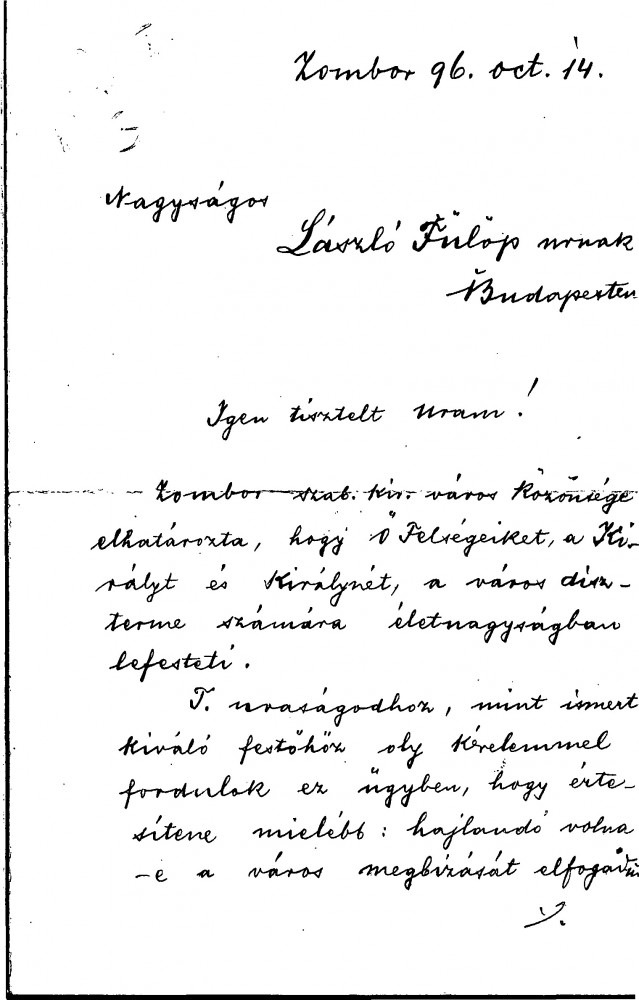 Zombor 96. oct. 14.
Nagyságos
László Fülöp urnak
Budapesten
Igen tisztelt Uram!
Zombor szab. kir. város közönsége
elhatározta, hogy Ő Felségeiket, a Ki-
rályt és Királynét, a város disz-
terme számára életnagyságban
lefesteti.
T. uraságodhoz, mint ismert
kiváló festőhöz oly kérelemmel
fordulok ez ügyben, hogy érte-
sítene mielébb: hajlandó volna
-e a város megbizását elfogadni